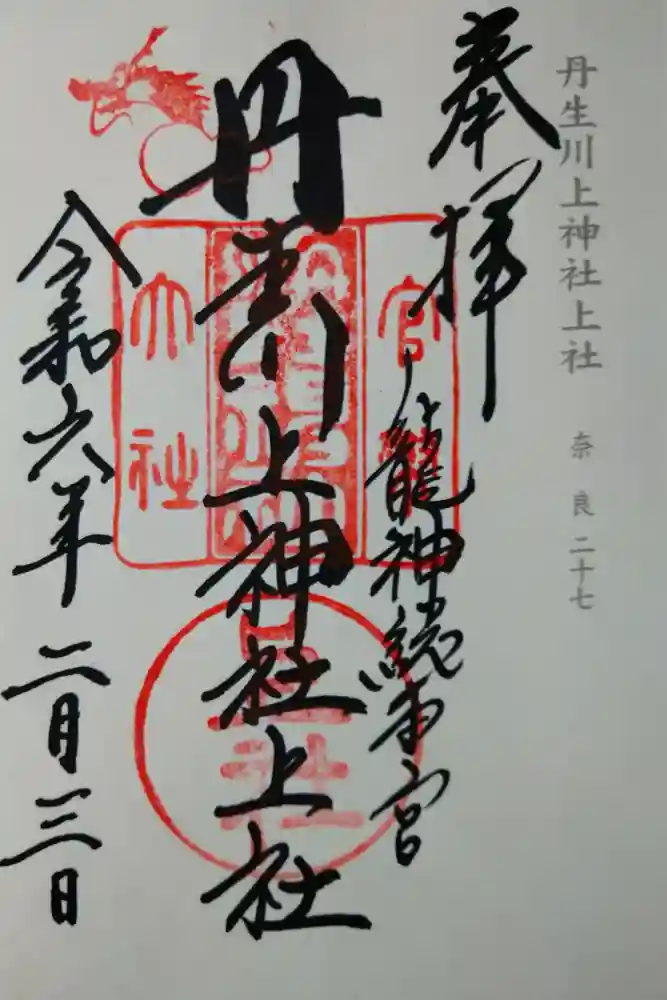 丹生川上神社上社 奈良二十七
奉拝
龍神総本宮
丹生川上神社上社
官 大社
令和六年二月三日